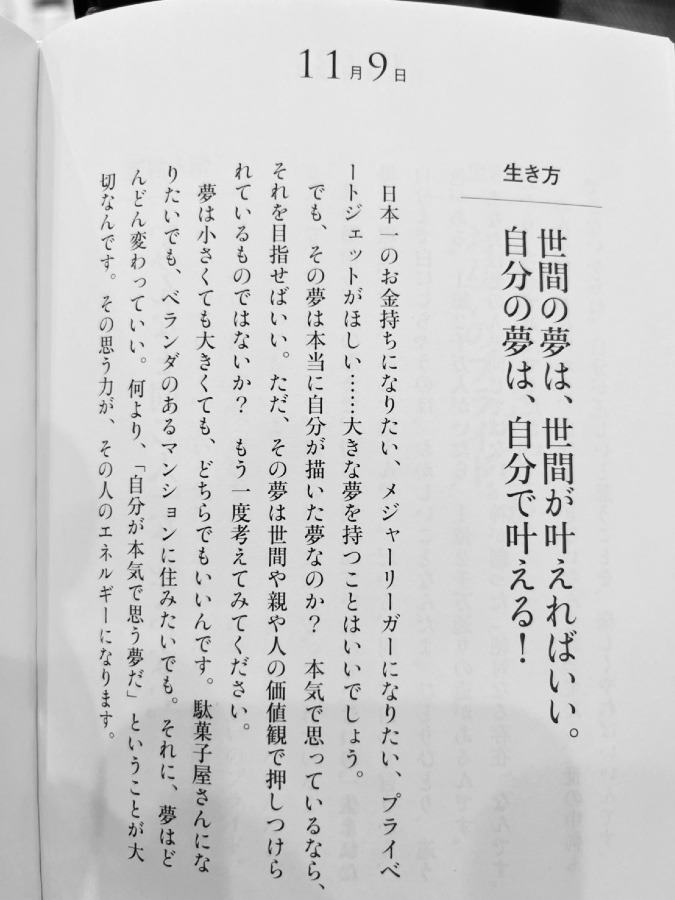 11月9日
生き方
世間の夢は、世間が叶えればいい。
自分の夢は、自分で叶える！
日本一のお金持ちになりたい、メジャーリーガーになりたい、プライベ
ートジェットがほしい……大きな夢を持つことはいいでしょう。
でも、その夢は本当に自分が描いた夢なのか？　本気で思っているなら、
それを目指せばいい。ただ、その夢は世間や親や人の価値観で押しつけら
れているものではないか？　もう一度考えてみてください。
夢は小さくても大きくても、どちらでもいいんです。駄菓子屋さんにな
りたいでも、ベランダのあるマンションに住みたいでも。それに、夢はど
んどん変わっていい。何より、「自分が本気で思う夢だ」ということが大
切なんです。その思う力が、その人のエネルギーになります。